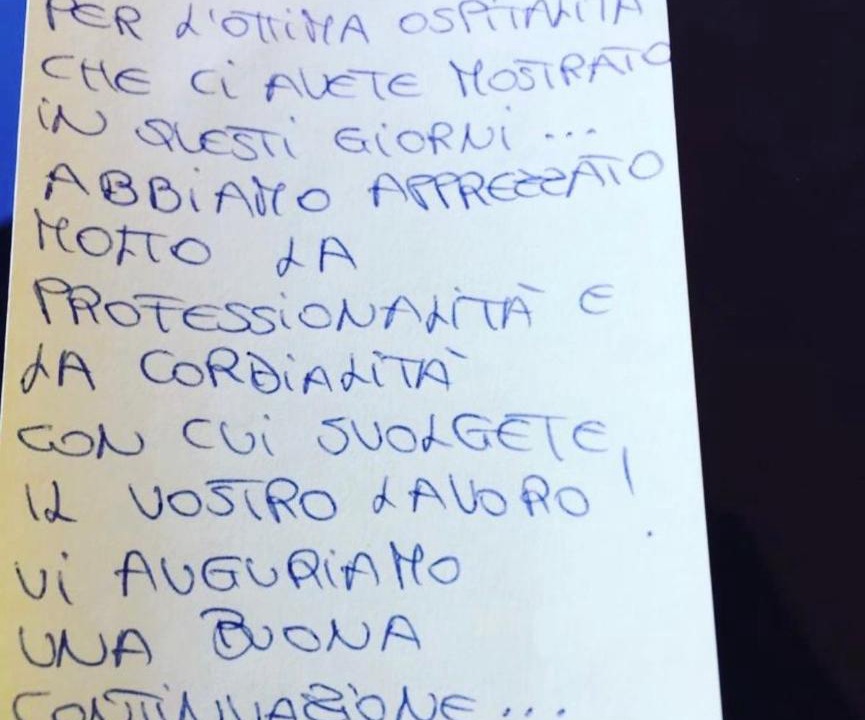 PER L'OTTIMA OSPITALITÀ
CHE CI AVETE MOSTRATO
IN QUESTI GIORNI...
ABBIAMO APPREZZATO
MOLTO LA
PROFESSIONALITÀ E
LA CORDIALITÀ
CON CUI SVOLGETE
IL VOSTRO LAVORO!
VI AUGURIAMO
UNA BUONA
CONTINUAZIONE...